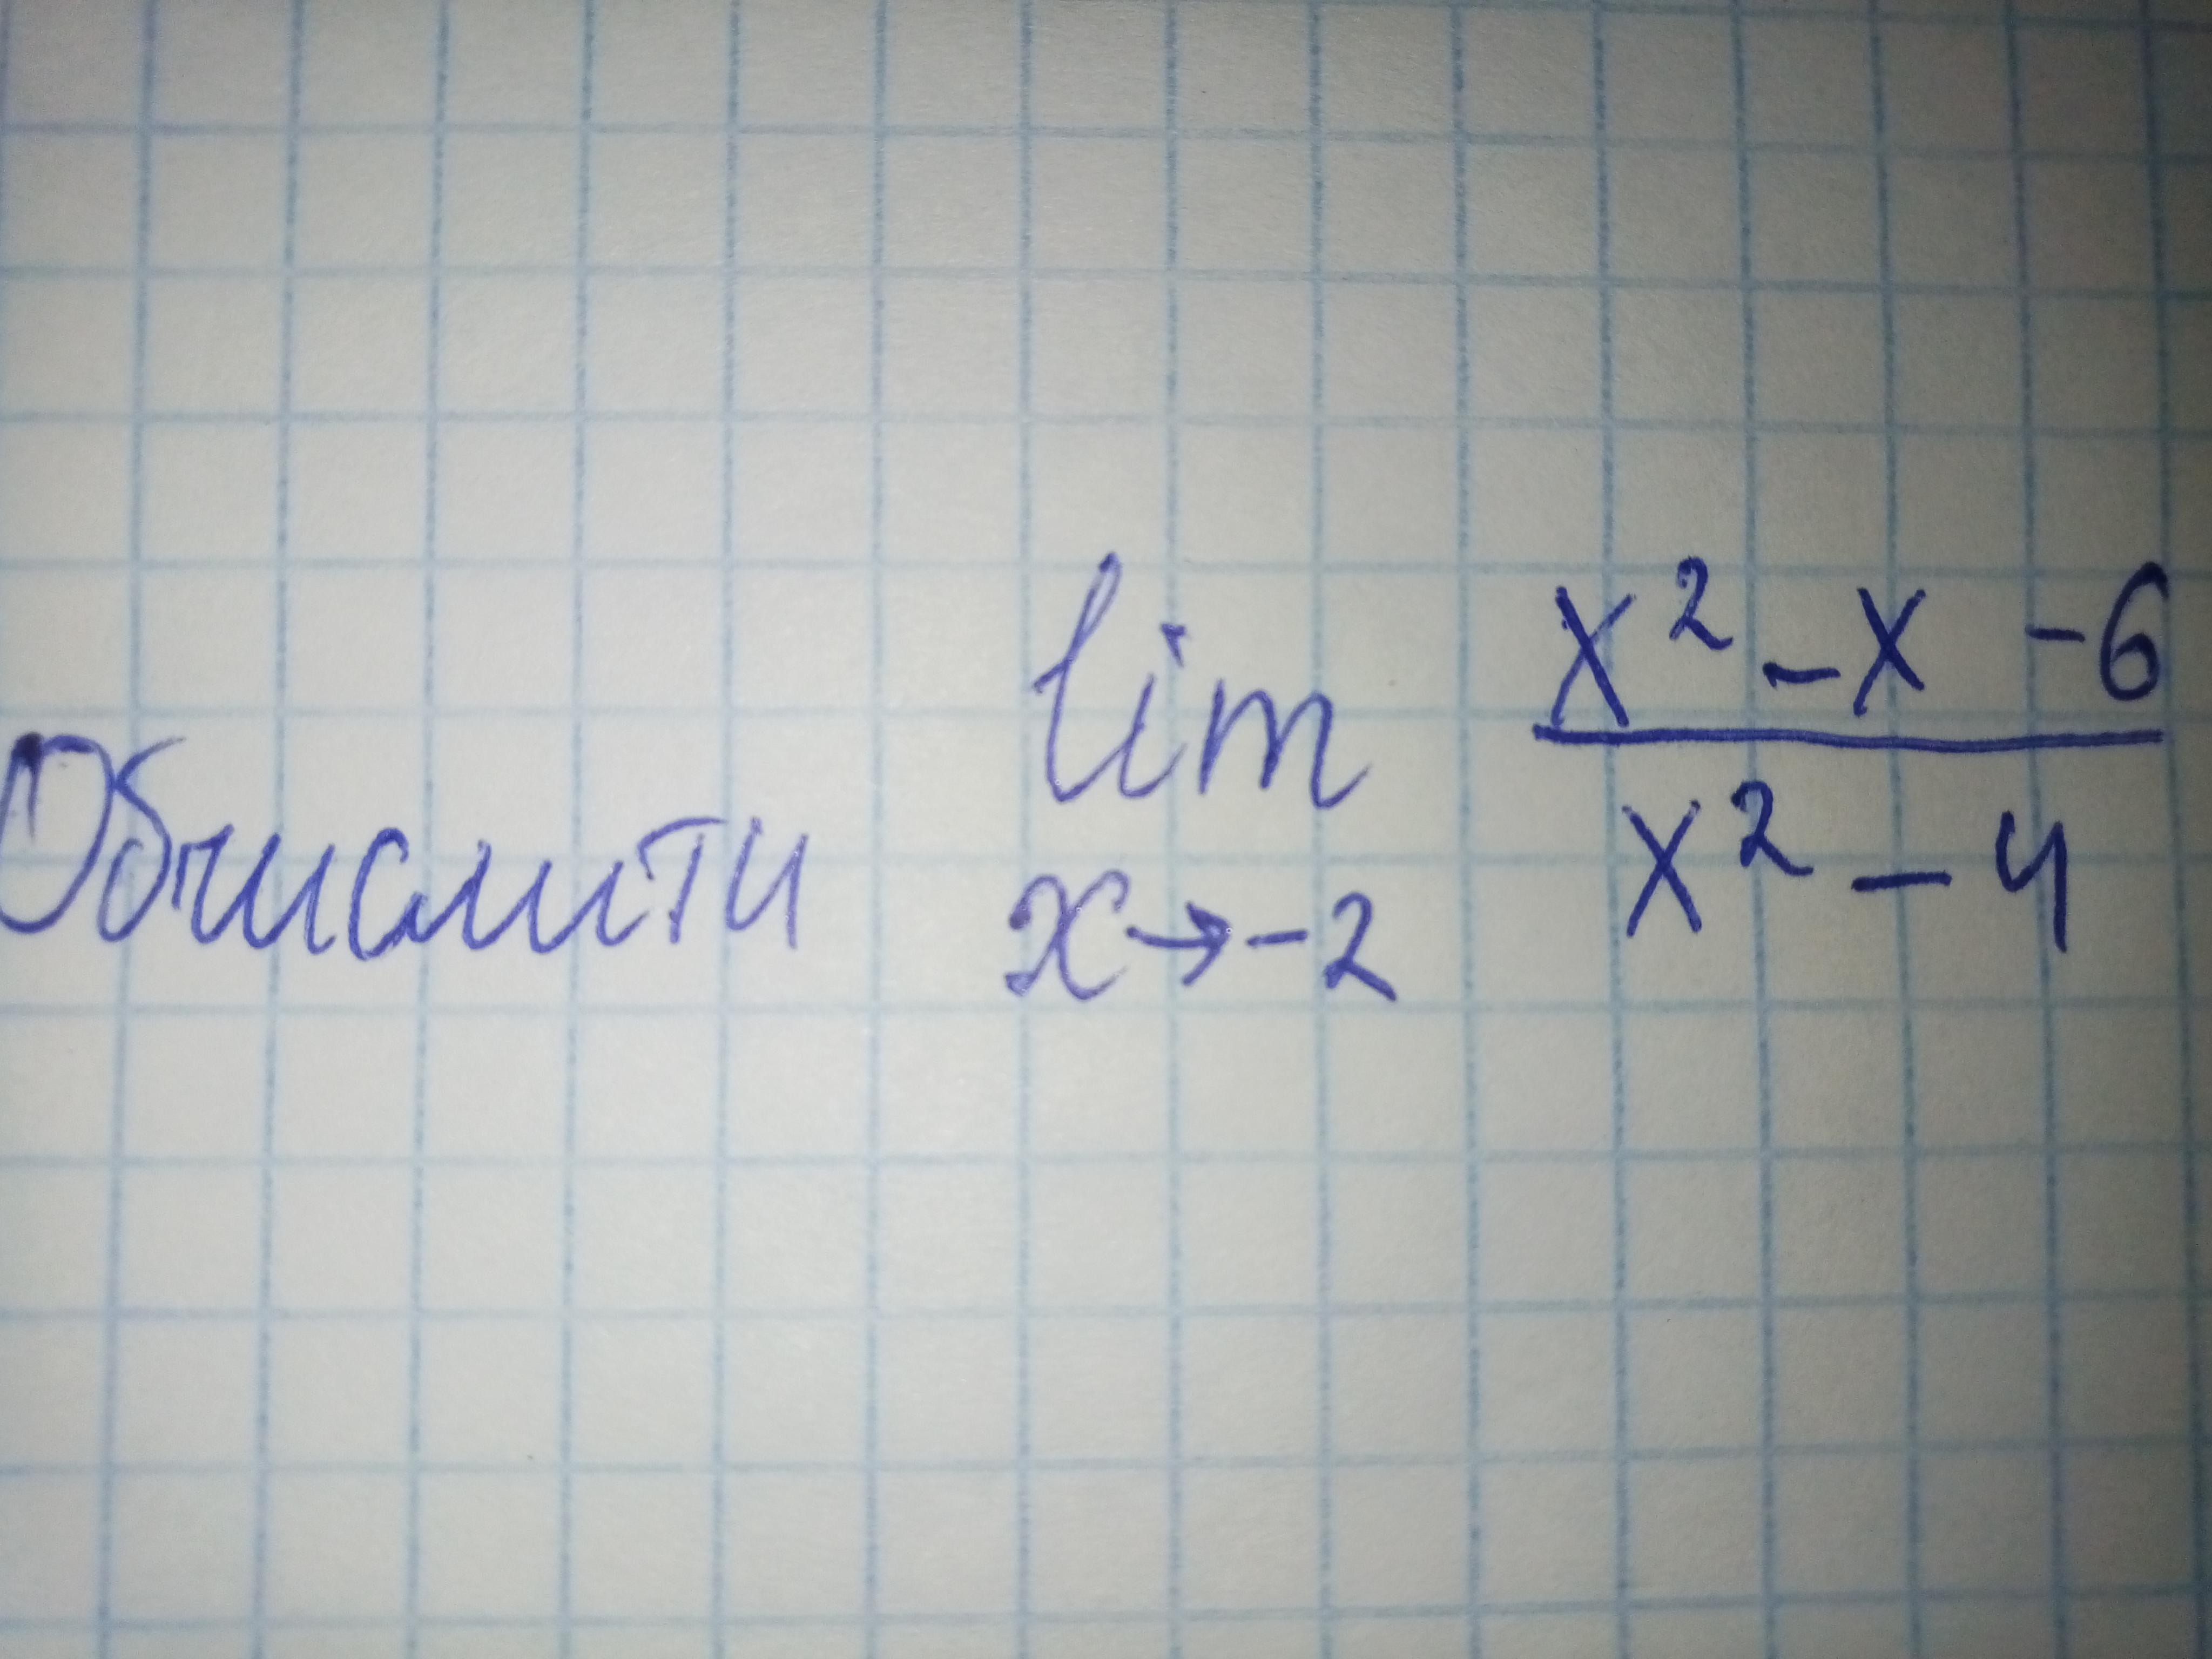 Обчислити lim x→-2 x² - x - 6 / x² - 4